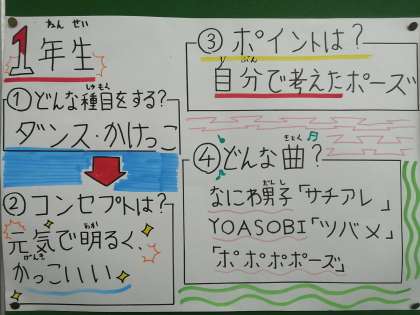 1年生
ねんせい
①どんな種目をする?
しゅもく
ダンス・かけっこ
②コンセプトは?
元気で明るく、
げんき
あか
かっこいい
③ポイントは?
自分で考えたポーズ
じぶん
④どんな曲?
きょく
なにわ男子「サチアレ」
だんし
YOASOBI「ツバメ」
「ポポポポーズ」